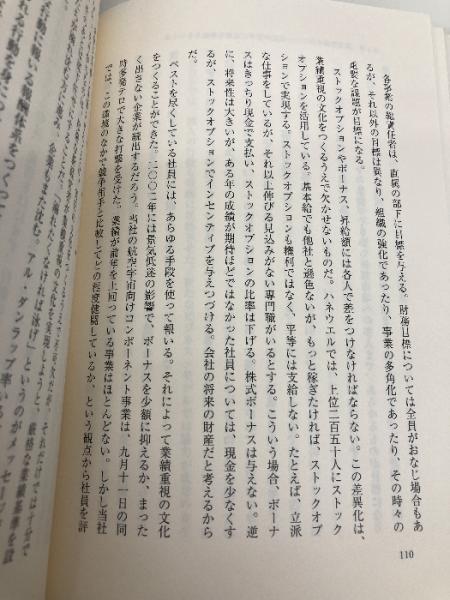 各事業の総責任者は、直属の部下に目標を与える。財務目標については全員がおなじ場合もあ
るが、それ以外の目標は異なり、組織の強化であったり、事業の多角化であったり、その時々の
重要な課題が目標になる。
ストックオプションやボーナス、昇給額には各人で差をつけなければならない。この差異化は、
業績重視の文化をつくるうえで欠かせないものだ。ハネウエルでは、上位二百五十人にストック
オプションを活用している。基本給でも他社と遜色ないが、もっと稼ぎたければ、ストックオプ
ションで実現する。ストックオプションも権利ではなく、平等には支給しない。たとえば、立派
な仕事をしているが、それ以上伸びる見込みがない専門職がいるとする。こういう場合、ボーナ
スはきっちり現金で支払い、ストックオプションの比率は下げる。株式ボーナスは与えない。逆
に、将来性は大きいが、ある年の成績が期待ほどではなかった社員については、現金を少なくす
るが、ストックオプションでインセンティブを与えつづける。会社の将来の財産だと考えるから
だ。
ベストを尽くしている社員には、あらゆる手段を使って報いる。それによって業績重視の文化
をつくることができた。二〇〇二年には景気低迷の影響で、ボーナスを少額に抑えるか、まった
く出さない企業が続出するだろう。当社の航空宇宙向けコンポーネント事業は、九月十一日の同
時多発テロで大きな打撃を受けた。業績が前年を上回っている事業はほとんどない。しかし当社
では、この環境のなかで競争相手と比較してどの程度健闘しているか、という観点から社員を評
110